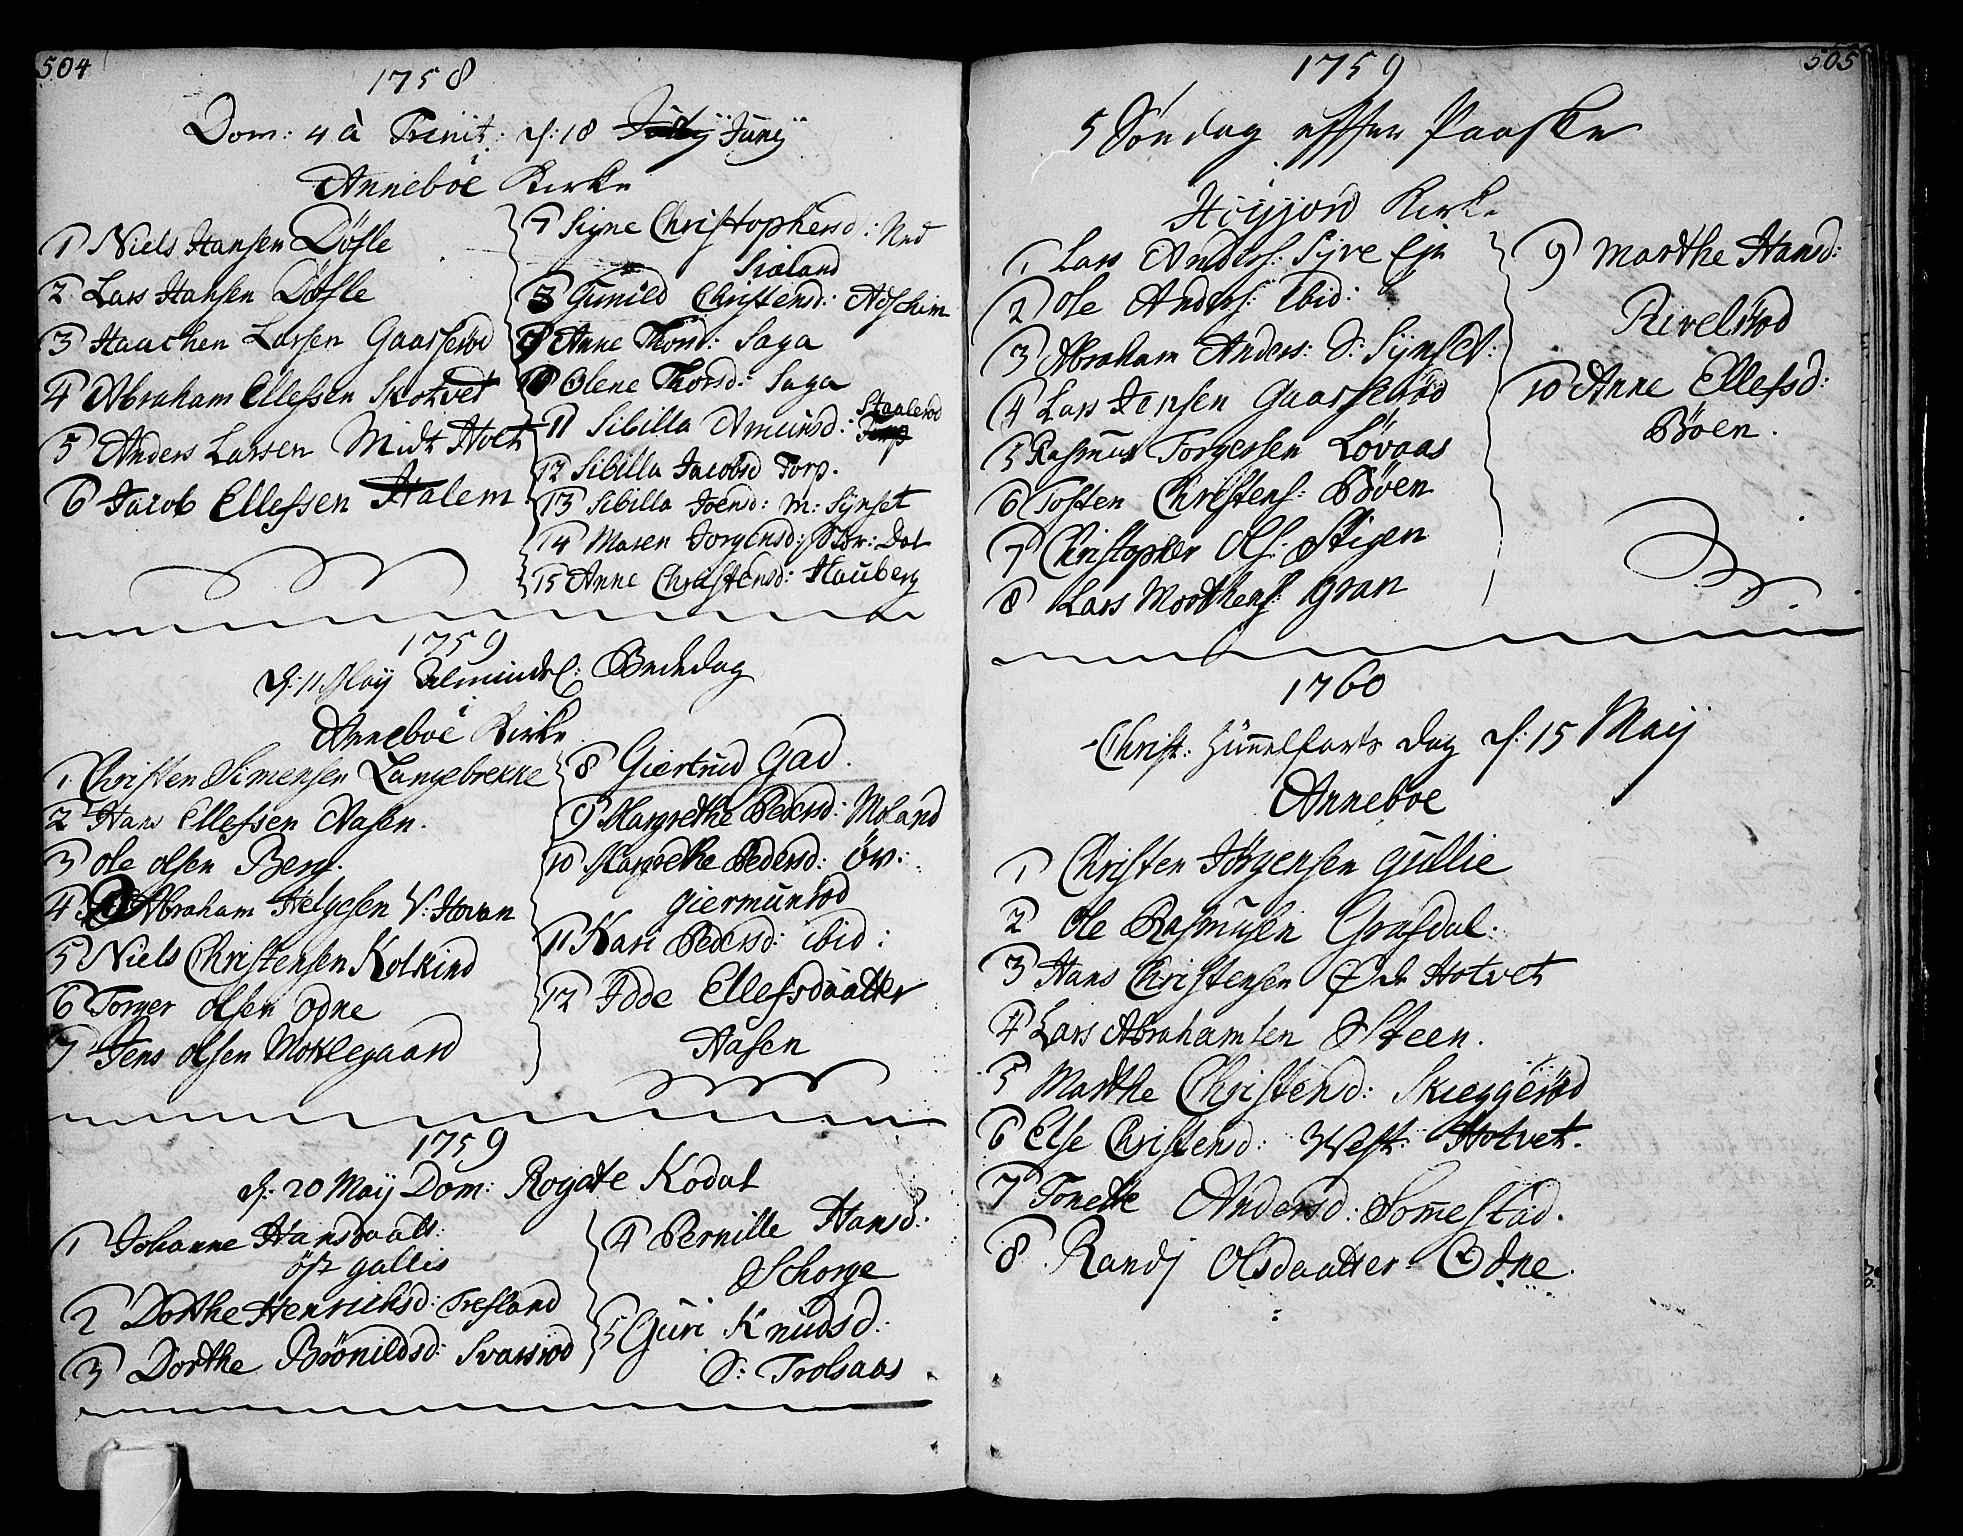 504
1758
Dom: 4 à Trinit: d: 18 Junij
Anneboe Kirke
1 Niels Hansen Döfle
2 Lars Hansen Döfle
3 Haachen Larsen Gaasserød
4 Abraham Ellefsen Skotvet
5 Anders Larsen Midt Holt
6 Jacob Ellefsen Stalem
7 Signe Christophersd: Ned
Siæland
8 Gunild Christensd:
9 Anne Thorsd: Saga
10 Olene Thorsd: Saga
11 Sibilla Amunsd: Staalerød
12 Sibilla Jacobsd Torp.
13 Sibilla Joensd: M: Sÿnset
14 Maren Jorgensd: Stor: Dal
15 Anne Christensd: Hauberg
1759
d: 11 Maij Almindel: Bededag
i
Anneboe Kirke
1 Christen Simensen Langebrekke
2 Hans Ellefsen Aasen.
3 Ole Olsen Berg.
4 Abraham Helgesen V: Hovan
5 Niels Christensen Kolkind
6 Torger Olsen Odne
7 Jens Olsen Moklegaard
8 Giertrud Gad.
9 Margrethe Pedersd: Moland
10 Margrethe Pedersd: Öv:
Giermundrød
11 Kari Pedersd: ibid:
12 Idde Ellefsdaatter
Aasen
1759
d: 20 Maij Dom: Rogate Kodal
1 Johanne Hansdaatt:
öst gallis
2 Dorthe Henrichsd: Trefland
3 Dorthe Brönildsd: Svarsrød
4 Pernille Hansd:
Schorge
5 Guri Knudsd:
S: Trolsaas
505
1759
5 Søndag effter Paaske
Høyjord Kirke
1 Lars Anders: Syre Eje
2 Ole Anders: ibid:
3 Abraham Anders: S: Sÿnset:
4 Lars Jensen Gaasserød
5 Rasmus Torgersen Lövaas
6 Tosten Christens: Böen
7 Christopher Ols: Stigen
8 Lars Morthens: Gran
9 Marthe Hansd:
Rivelsrød
10 Anne Ellefsd:
Böen.
1760
Christ: Himmelfarts Dag d: 15 Maij
Anneboe
1 Christen Jörgensen Gullie
2 Ole Rasmusen Grafdal.
3 Hans Christensen Hotvet
4 Lars Abrahamsen Steen.
5 Marthe Christensd: Skieggerød
6 Else Christensd: West: Hotvet.
7 Tonette Andersd: Somestad.
8 Randj Olsdaatter Odne.